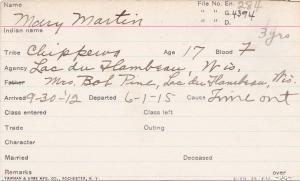 Name
File No. En. 284
Mary Martin
" " G. 4394
Indian name
" " D.
3 yrs
Tribe Chippewa Age 17 Blood F
Agency Lac du Flambeau, Wis.
Father Mrs. Bob Pine, Lac du Flambeau, Wis.
Arrived 9-30-'12 Departed 6-1-15 Cause Time out
Class entered Class left
Trade Outing
Character
Married Deceased
Remarks over
YAWMAN & ERBE MFG. CO., ROCHESTER, N. Y.